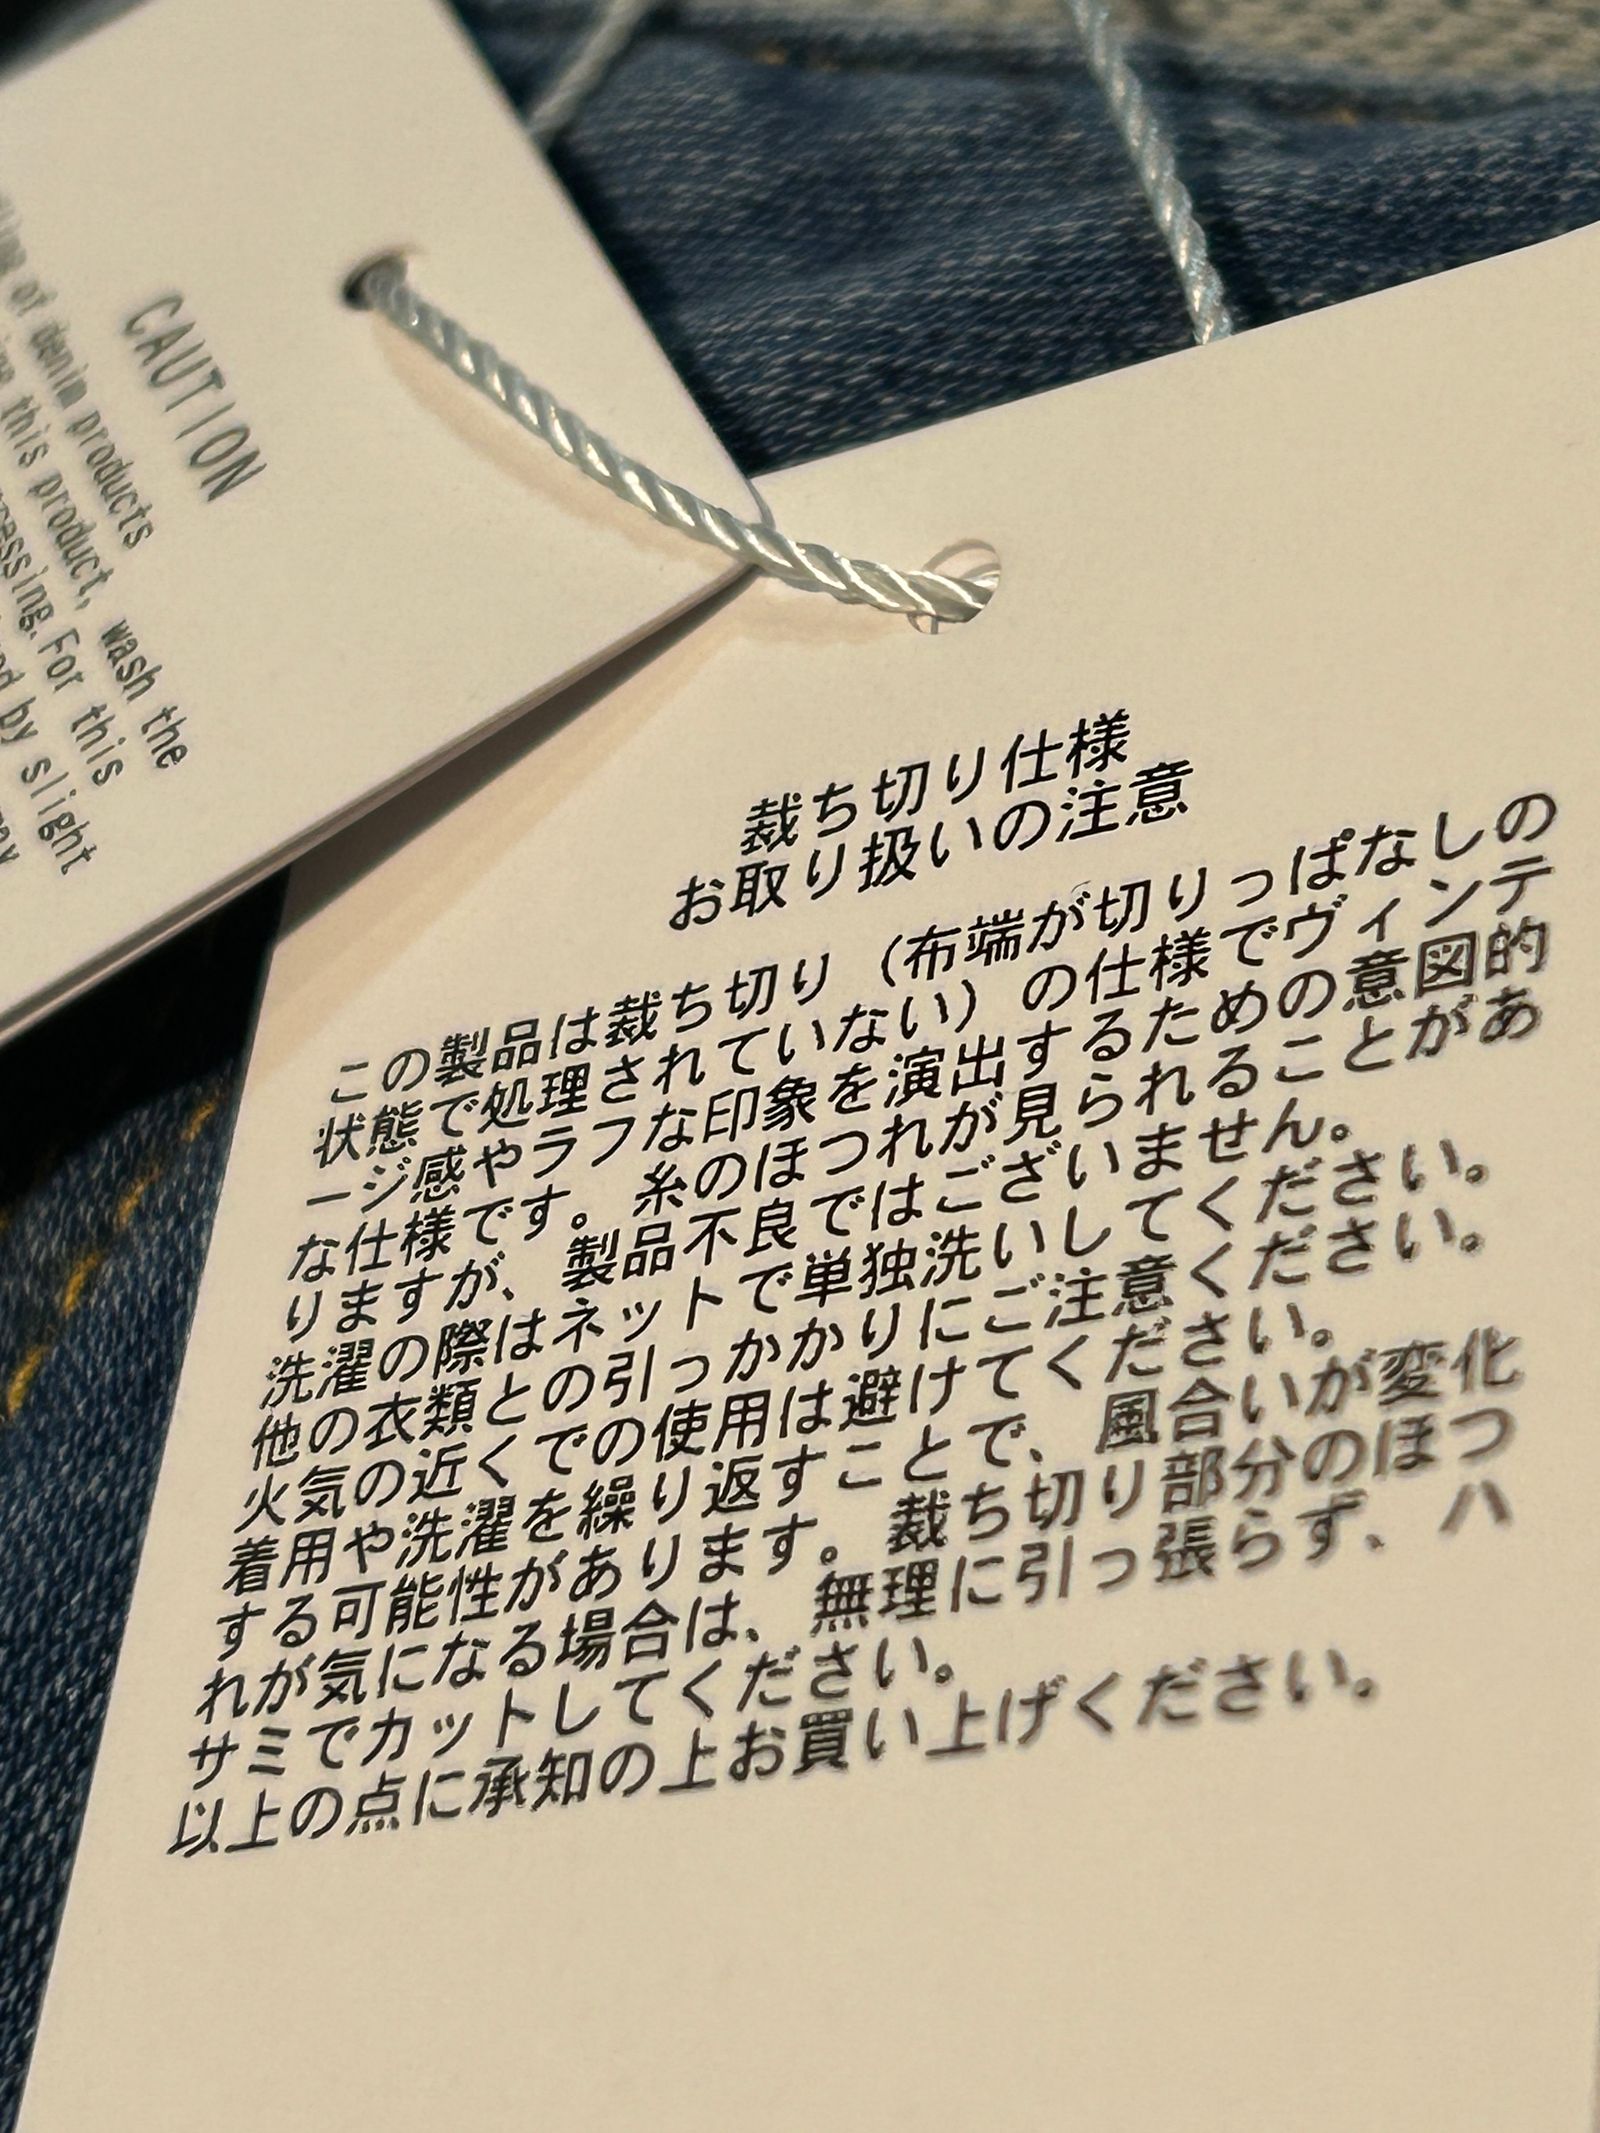 CAUTION
of denim products
this product, wash the
For this
by slight
裁ち切り仕様
お取り扱いの注意
この製品は裁ち切り（布端が切りっぱなしの
状態で処理されていない）の仕様でヴィンテ
ージ感やラフな印象を演出するための意図的
な仕様です。糸のほつれが見られることがあ
りますが、製品不良ではございません。
洗濯の際はネットで単独洗いしてください。
他の衣類との引っかかりにご注意ください。
火気の近くでの使用は避けてください。
着用や洗濯を繰り返すことで、風合いが変化
する可能性があります。裁ち切り部分のほつ
れが気になる場合は、無理に引っ張らず、ハ
サミでカットしてください。
以上の点に承知の上お買い上げください。